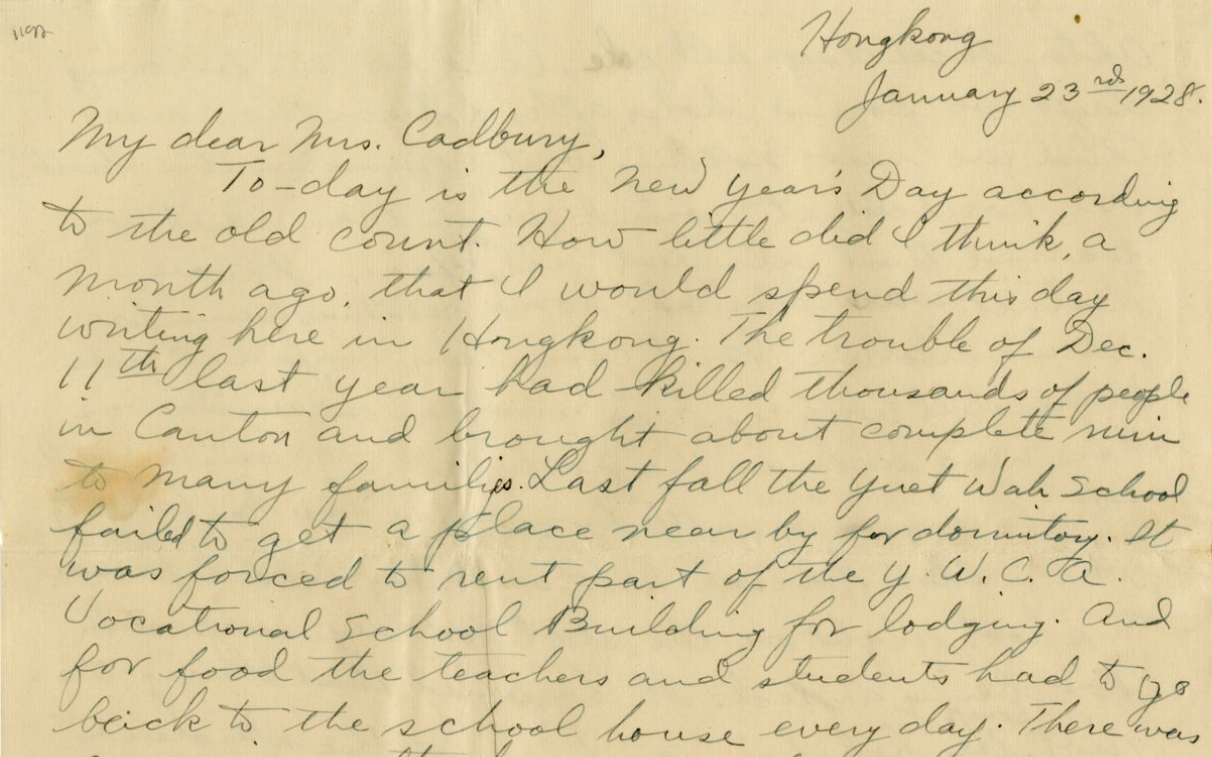 Hongkong
January 23rd 1928.
My dear Mrs. Cadbury,
To-day is the New Year's Day according
to the old count. How little did I think, a
month ago, that I would spend this day
writing here in Hongkong. The trouble of Dec.
11th last year had killed thousands of people
in Canton and brought about complete ruin
to many families. Last fall the Yuet Wah School
failed to get a place near by for dormitory. It
was forced to rent part of the Y. W. C. A.
Vocational School Building for lodging. And
for food the teachers and students had to go
back to the school house every day. There was